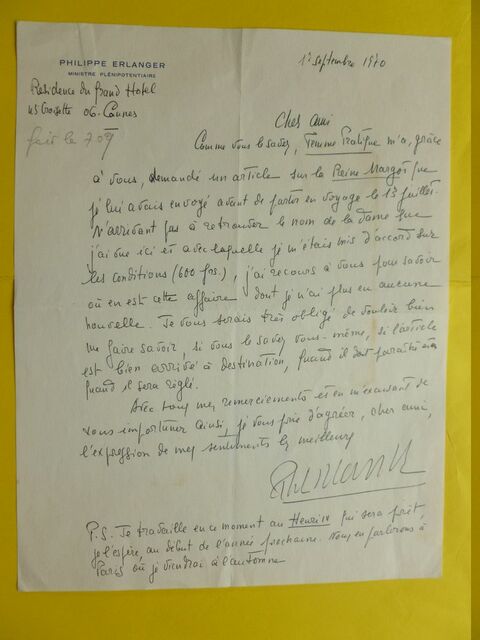 PHILIPPE ERLANGER
MINISTRE PLÉNIPOTENTIAIRE
1er septembre 1970
Résidence du Grand Hotel
45 Croisette 06. Cannes
fait le 7 09
Cher ami
Comme vous le savez, Femme Pratique m'a, grâce
à vous, demandé un article sur la Reine Margot que
je lui avais envoyé avant de partir en voyage le 13 juillet.
N'arrivant pas à retrouver le nom de la dame que
j'ai vue ici et avec laquelle je m'étais mis d'accord sur
les conditions (600 frs.), j'ai recours à vous pour savoir
où en est cette affaire dont je n'ai plus eu aucune
nouvelle. Je vous serais très obligé de vouloir bien
me faire savoir, si vous le savez vous-même, si l'article
est bien arrivé à destination, quand il doit paraître et
quand il sera réglé.
Avec tous mes remerciements et en m'excusant de
vous importuner ainsi, je vous prie d'agréer, cher ami,
l'expression de mes sentiments les meilleurs
P.S. Je travaille en ce moment au Henri IV qui sera prêt,
je l'espère, au début de l'année prochaine. Nous en parlerons à
Paris où je viendrai à l'automne